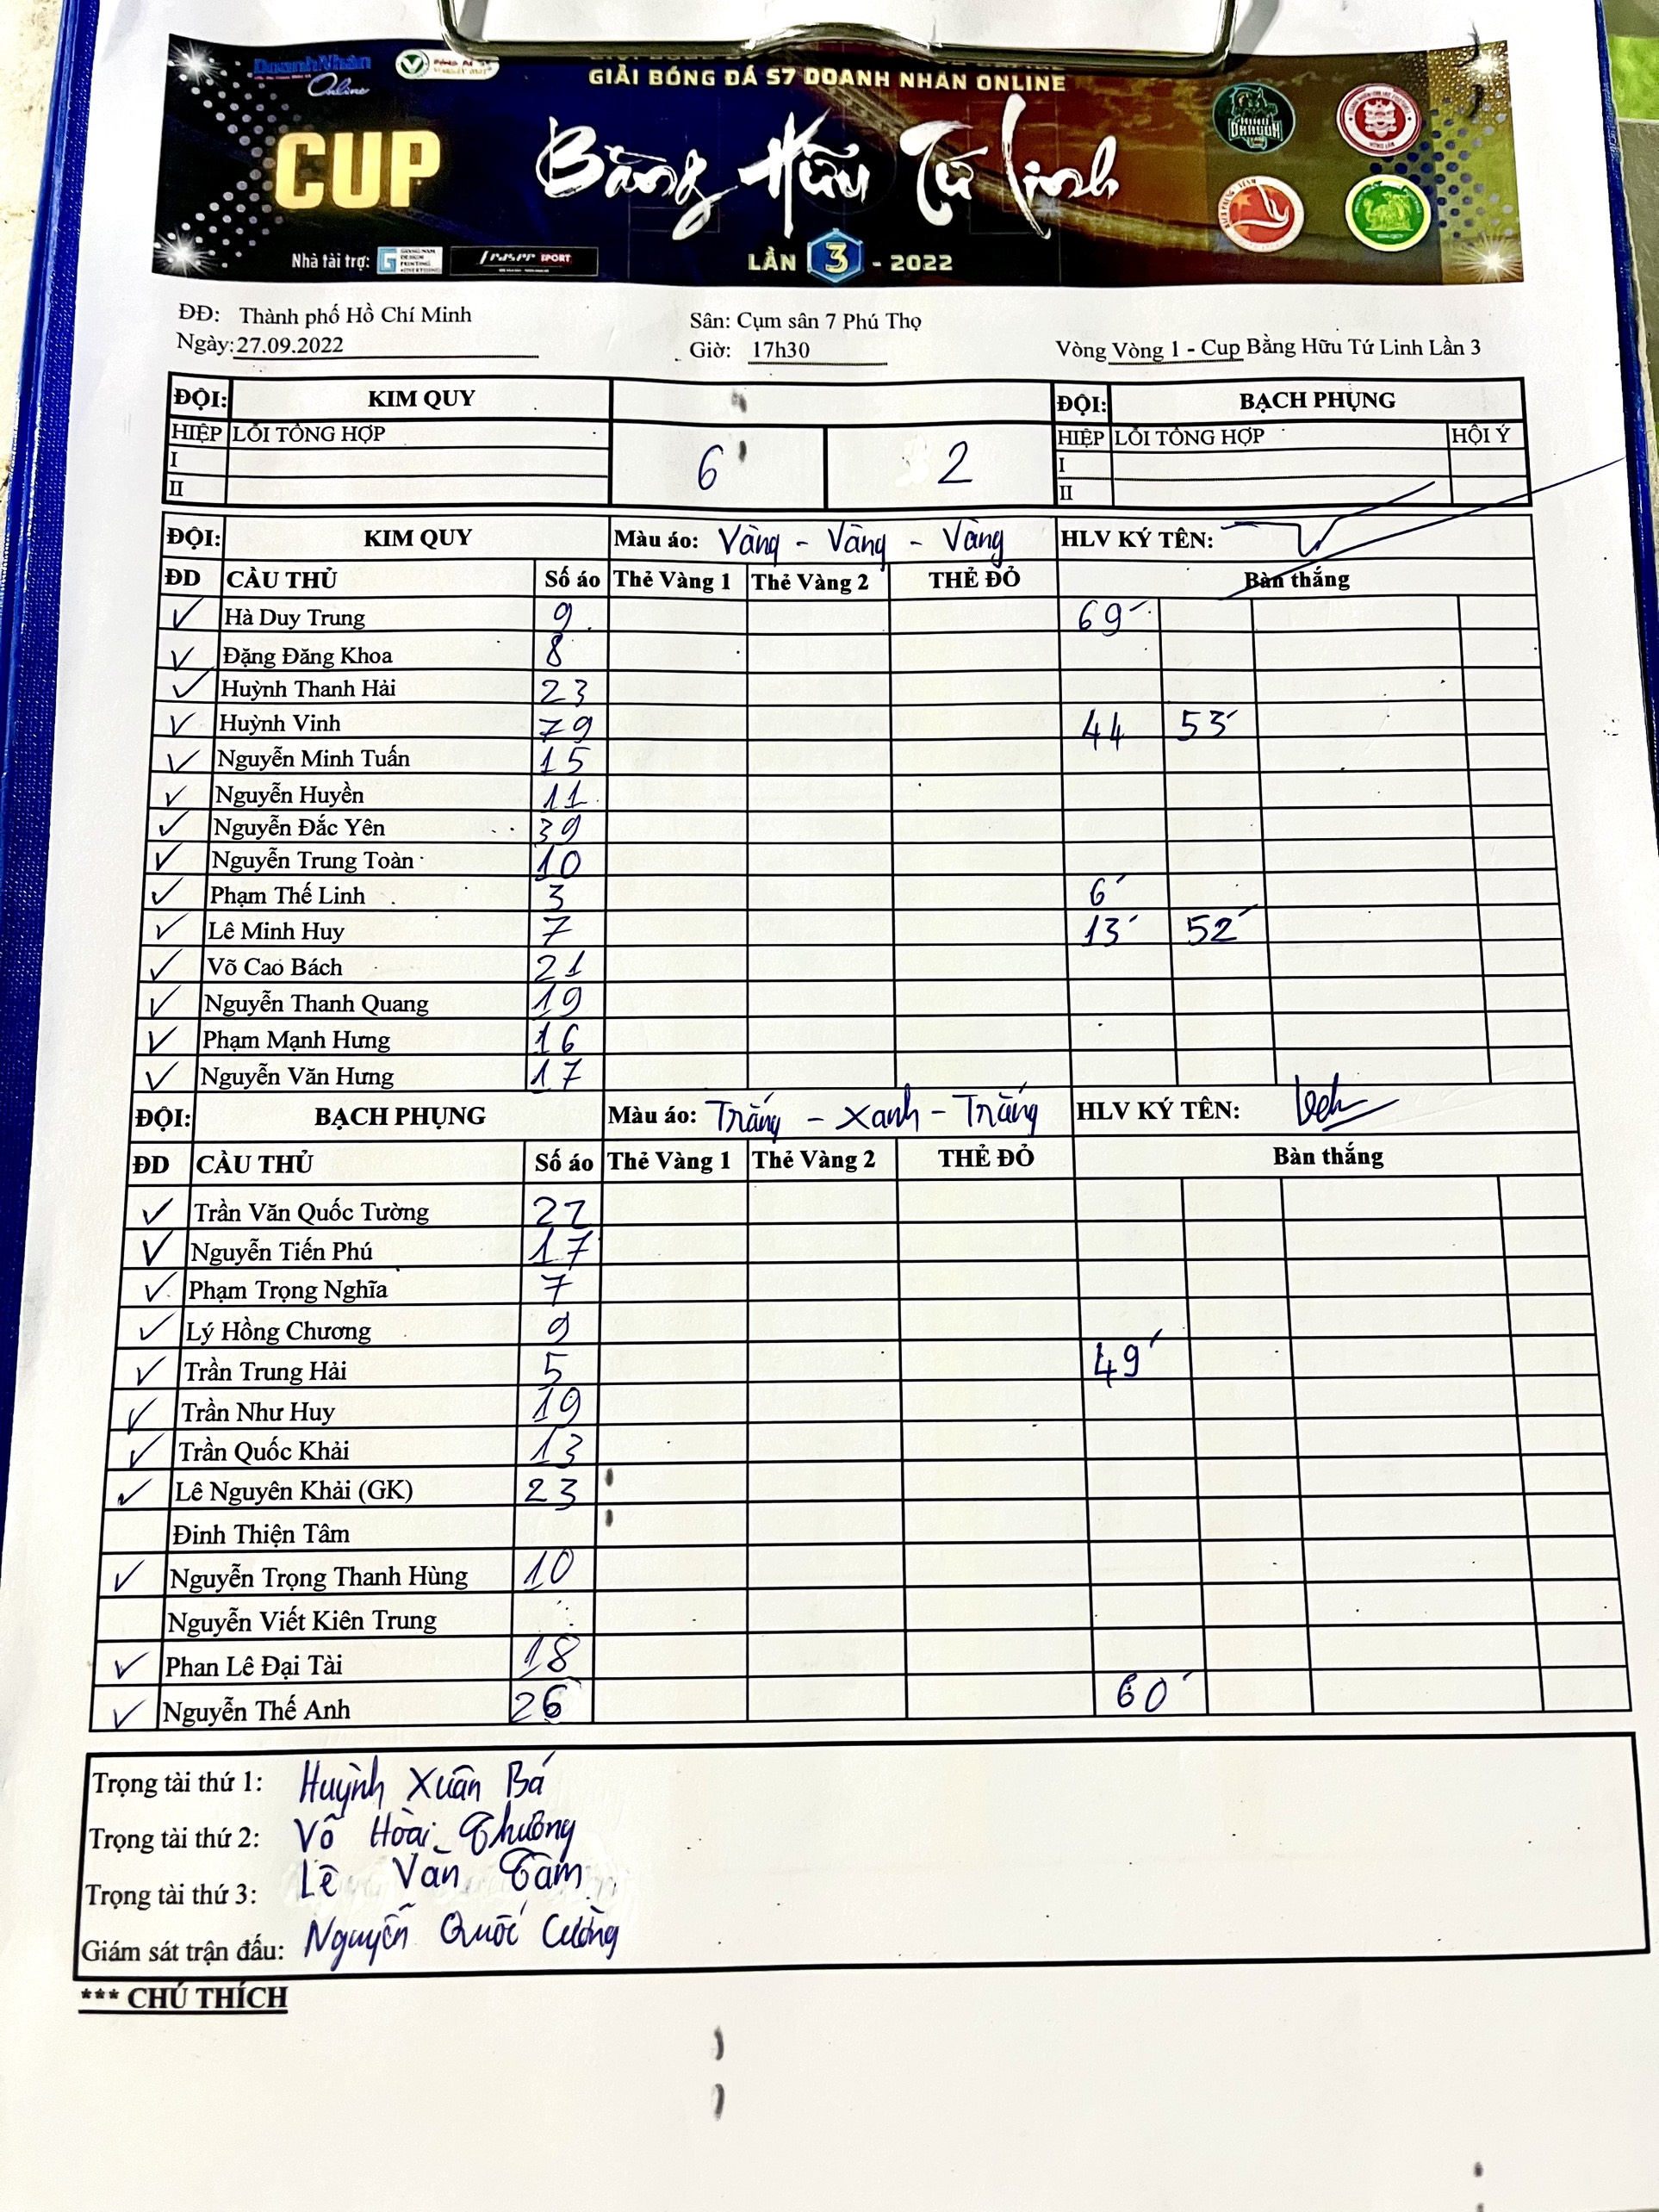 DoanhNhân
Online
GIẢI BÓNG ĐÁ S7 DOANH NHÂN ONLINE
CUP Bằng Hữu Tứ Linh
Nhà tài trợ: SPORT
LẦN 3 - 2022
ĐĐ: Thành phố Hồ Chí Minh Sân: Cụm sân 7 Phú Thọ
Ngày: 27.09.2022 Giờ: 17h30 Vòng Vòng 1 - Cup Bằng Hữu Tứ Linh Lần 3
ĐỘI: KIM QUY ĐỘI: BẠCH PHỤNG
HIỆP LỖI TỔNG HỢP 6 2 HIỆP LỖI TỔNG HỢP HỘI Ý
I I
II II
ĐỘI: KIM QUY Màu áo: Vàng - Vàng - Vàng HLV KÝ TÊN:
ĐD CẦU THỦ Số áo Thẻ Vàng 1 Thẻ Vàng 2 THẺ ĐỎ Bàn thắng
✓ Hà Duy Trung 9 69'
✓ Đặng Đăng Khoa 8
✓ Huỳnh Thanh Hải 23
✓ Huỳnh Vinh 79 44 53'
✓ Nguyễn Minh Tuấn 15
✓ Nguyễn Huyền 11
✓ Nguyễn Đắc Yên 39
✓ Nguyễn Trung Toàn 10
✓ Phạm Thế Linh 3 6'
✓ Lê Minh Huy 7 13' 52'
✓ Võ Cao Bách 21
✓ Nguyễn Thanh Quang 19
✓ Phạm Mạnh Hưng 16
✓ Nguyễn Văn Hưng 17
ĐỘI: BẠCH PHỤNG Màu áo: Trắng - Xanh - Trắng HLV KÝ TÊN:
ĐD CẦU THỦ Số áo Thẻ Vàng 1 Thẻ Vàng 2 THẺ ĐỎ Bàn thắng
✓ Trần Văn Quốc Tường 22
✓ Nguyễn Tiến Phú 17
✓ Phạm Trọng Nghĩa 7
✓ Lý Hồng Chương 9
✓ Trần Trung Hải 5 49'
✓ Trần Như Huy 19
✓ Trần Quốc Khải 13
✓ Lê Nguyên Khải (GK) 23
Đinh Thiện Tâm
✓ Nguyễn Trọng Thanh Hùng 10
Nguyễn Viết Kiên Trung
✓ Phan Lê Đại Tài 18
✓ Nguyễn Thế Anh 26 60'
Trọng tài thứ 1: Huỳnh Xuân Bá
Trọng tài thứ 2: Võ Hoài Thương
Trọng tài thứ 3: Lê Văn Tâm
Giám sát trận đấu: Nguyễn Quốc Cường
*** CHÚ THÍCH